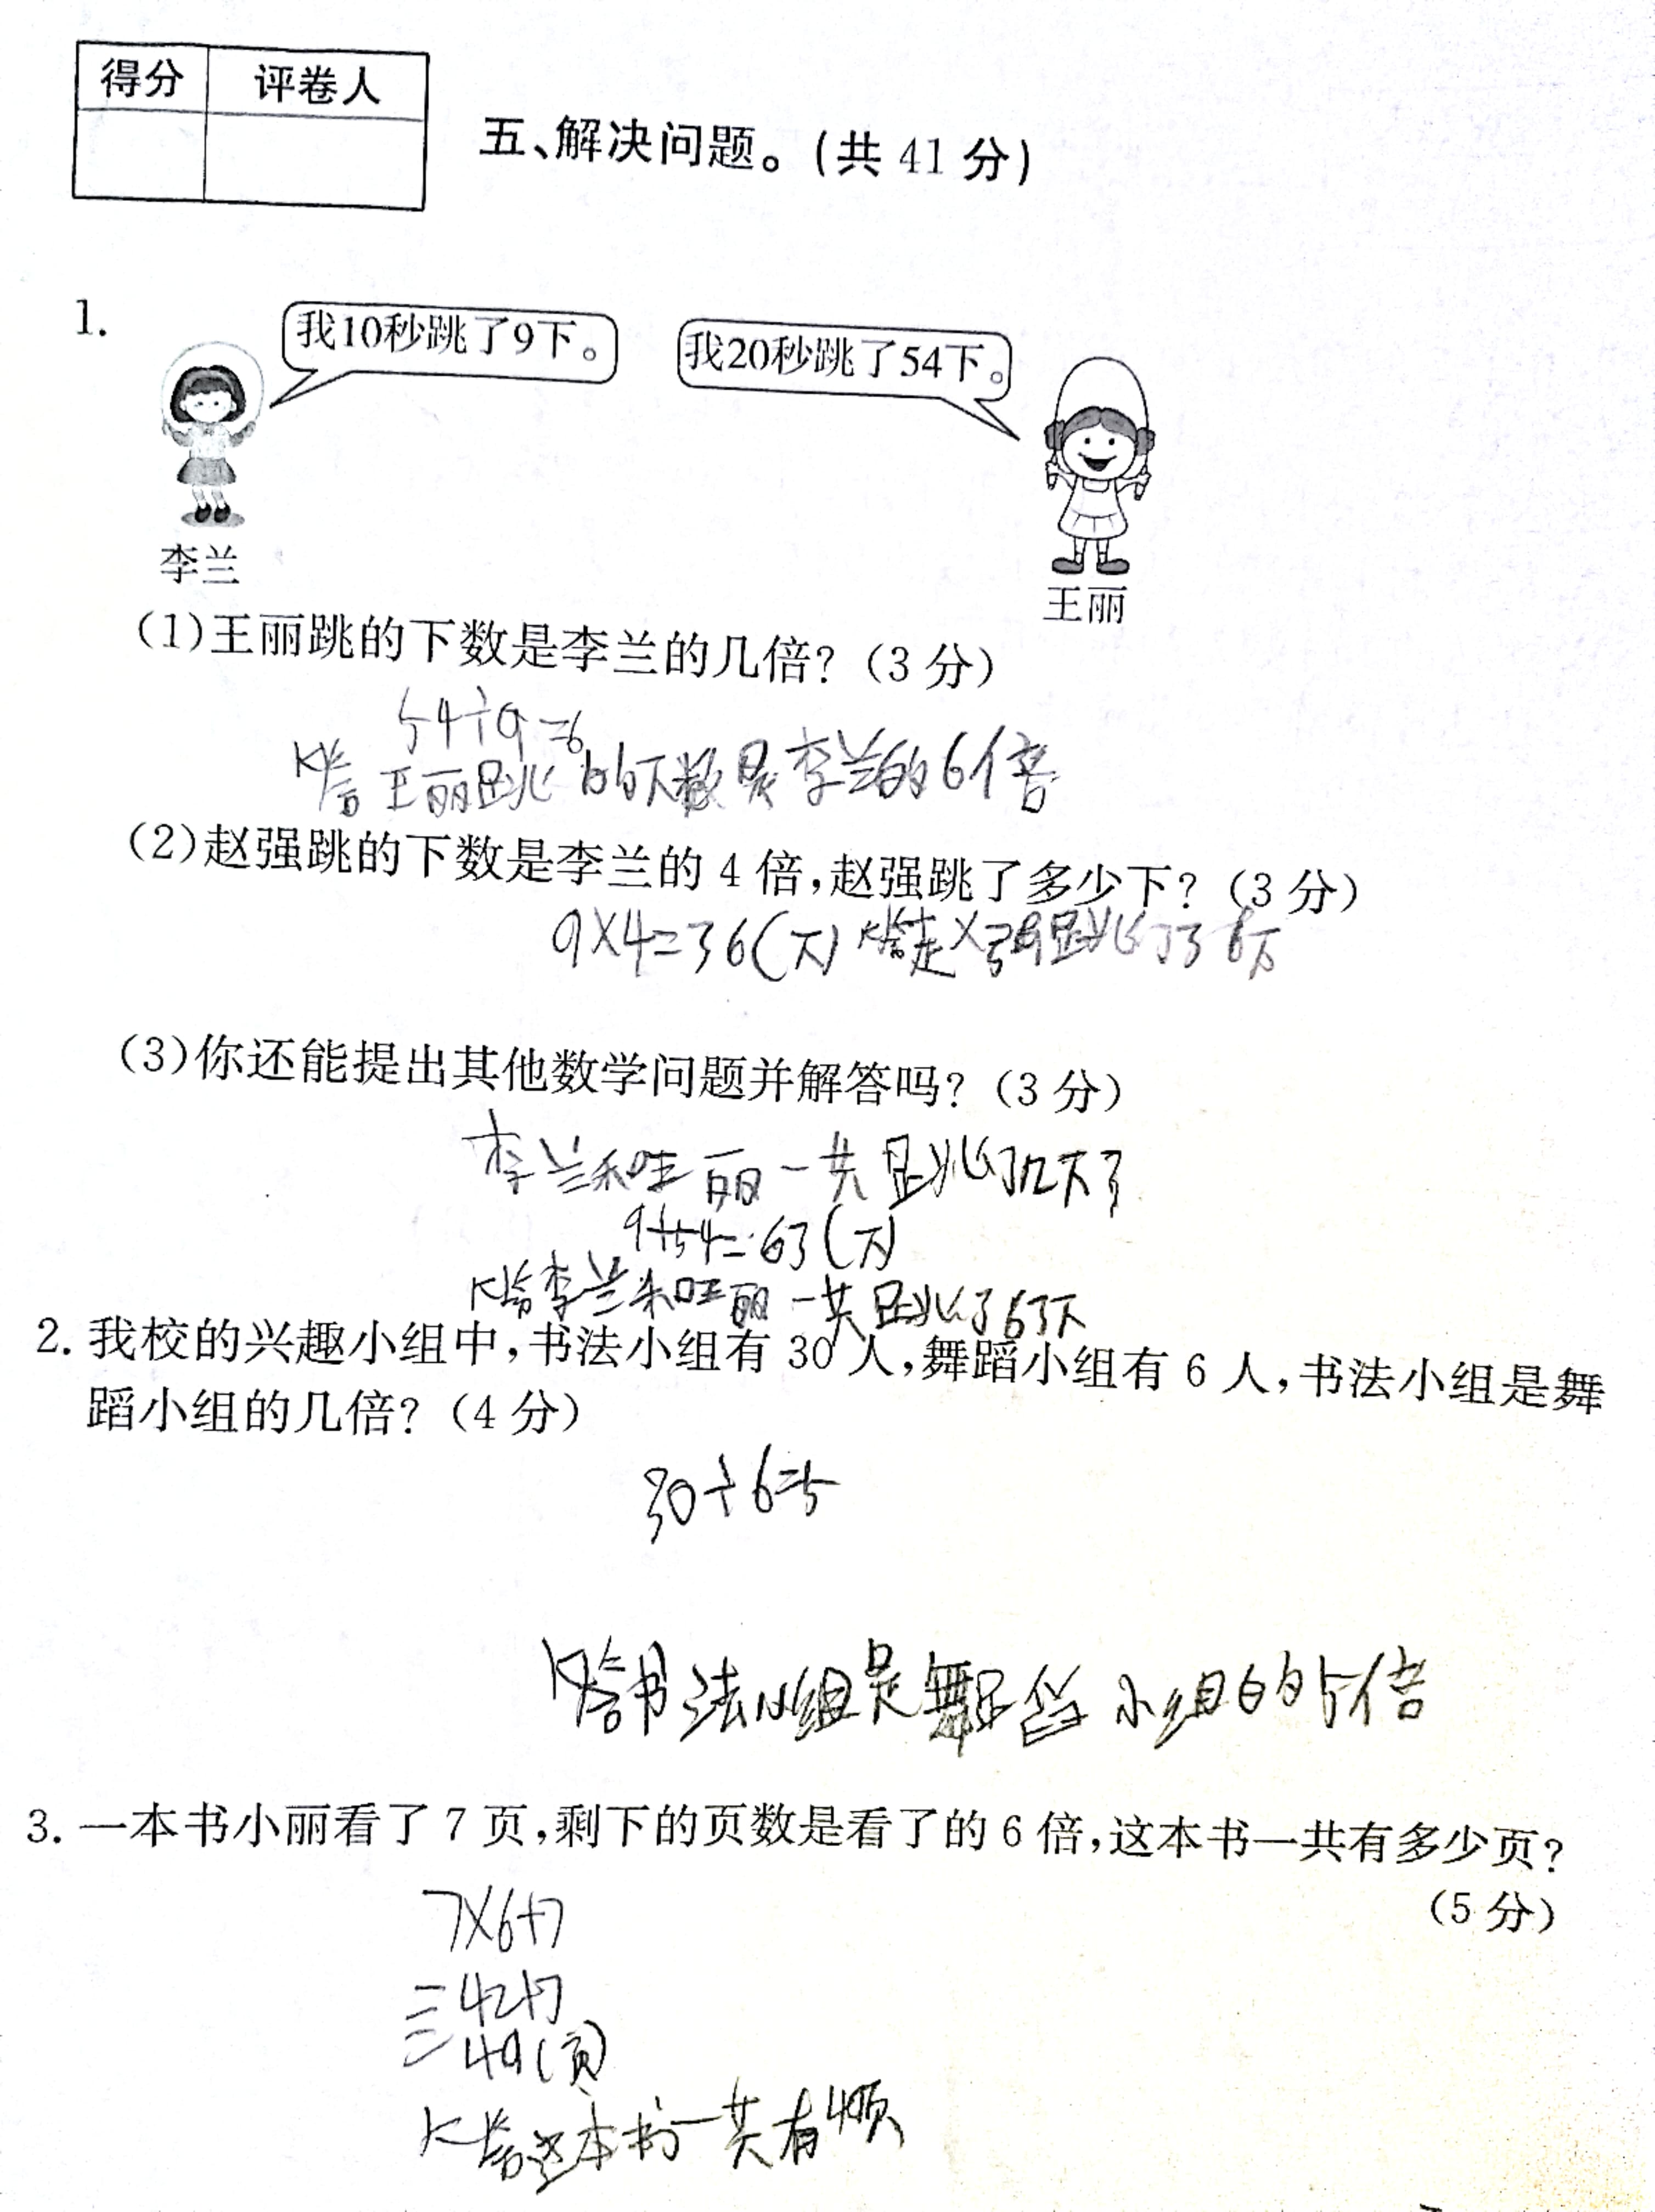 得分 评卷人
五、解决问题。(共 41 分)
1.
我10秒跳了9下。
我20秒跳了54下。
李兰
王丽
(1)王丽跳的下数是李兰的几倍?(3 分)
54÷9=6
答王丽跳的下数是李兰的6倍
(2)赵强跳的下数是李兰的 4 倍,赵强跳了多少下?(3 分)
9×4=36(下) 答赵强跳了36下
(3)你还能提出其他数学问题并解答吗?(3 分)
李兰和王丽一共跳了几下
9+54=63(下)
答李兰和王丽一共跳了63下
2. 我校的兴趣小组中,书法小组有 30 人,舞蹈小组有 6 人,书法小组是舞
蹈小组的几倍?(4 分)
30÷6=5
答书法小组是舞蹈小组的5倍
3. 一本书小丽看了 7 页,剩下的页数是看了的 6 倍,这本书一共有多少页?
(5 分)
7×6+7
=42+7
=49(页)
答这本书一共有49页